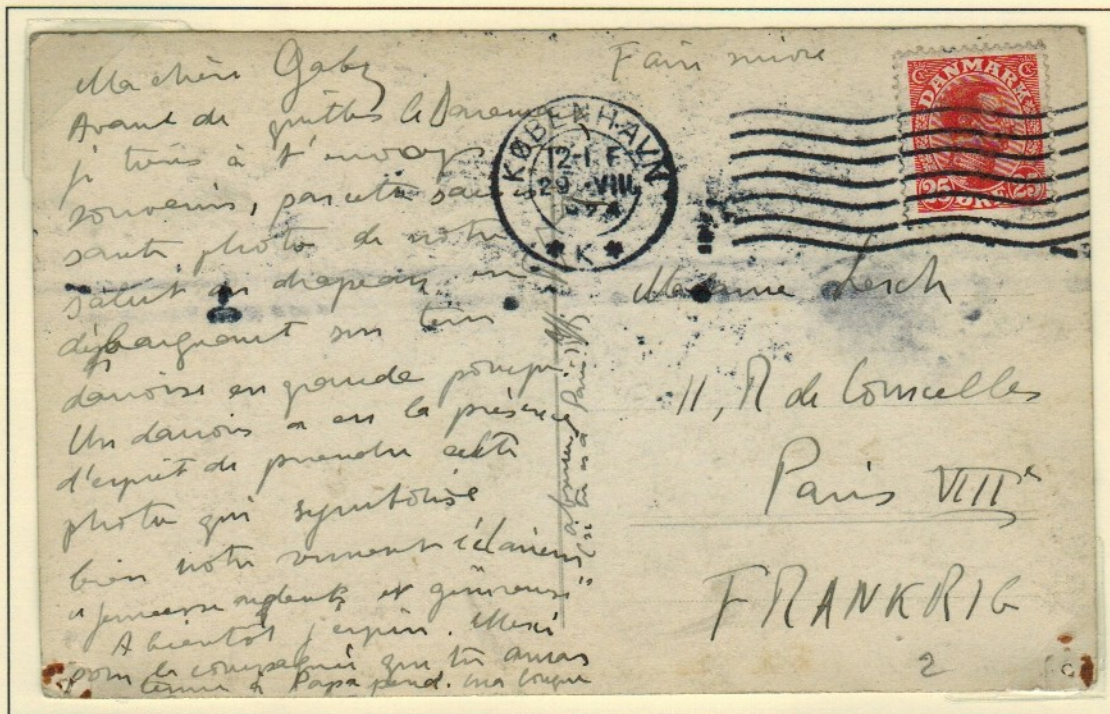 Ma chère Gaby
Avant de quitter le Danemark
je tiens à t'envoyer
souvenirs, par cette
sante photo de notre
salut au drapeau en
débarquant sur terre
danoise en grande pompe
Un danois a eu la présence
d'esprit de prendre cette
photo qui symbolise
bien notre mouvement éclaireur
"jeunesse ardente et généreuse"
A bientôt j'espère. Merci
pour la compagnie que tu auras
tenue à Papa pend. ma longue
absence
(si tu es à Paris!!!)
Faire suivre
KØBENHAVN
12-1 F
29. VIII
★ K ★
DANMARK
25 ØRE 25
Madame Lerch
11, R de Courcelles
Paris VIIIe
FRANKRIG
2